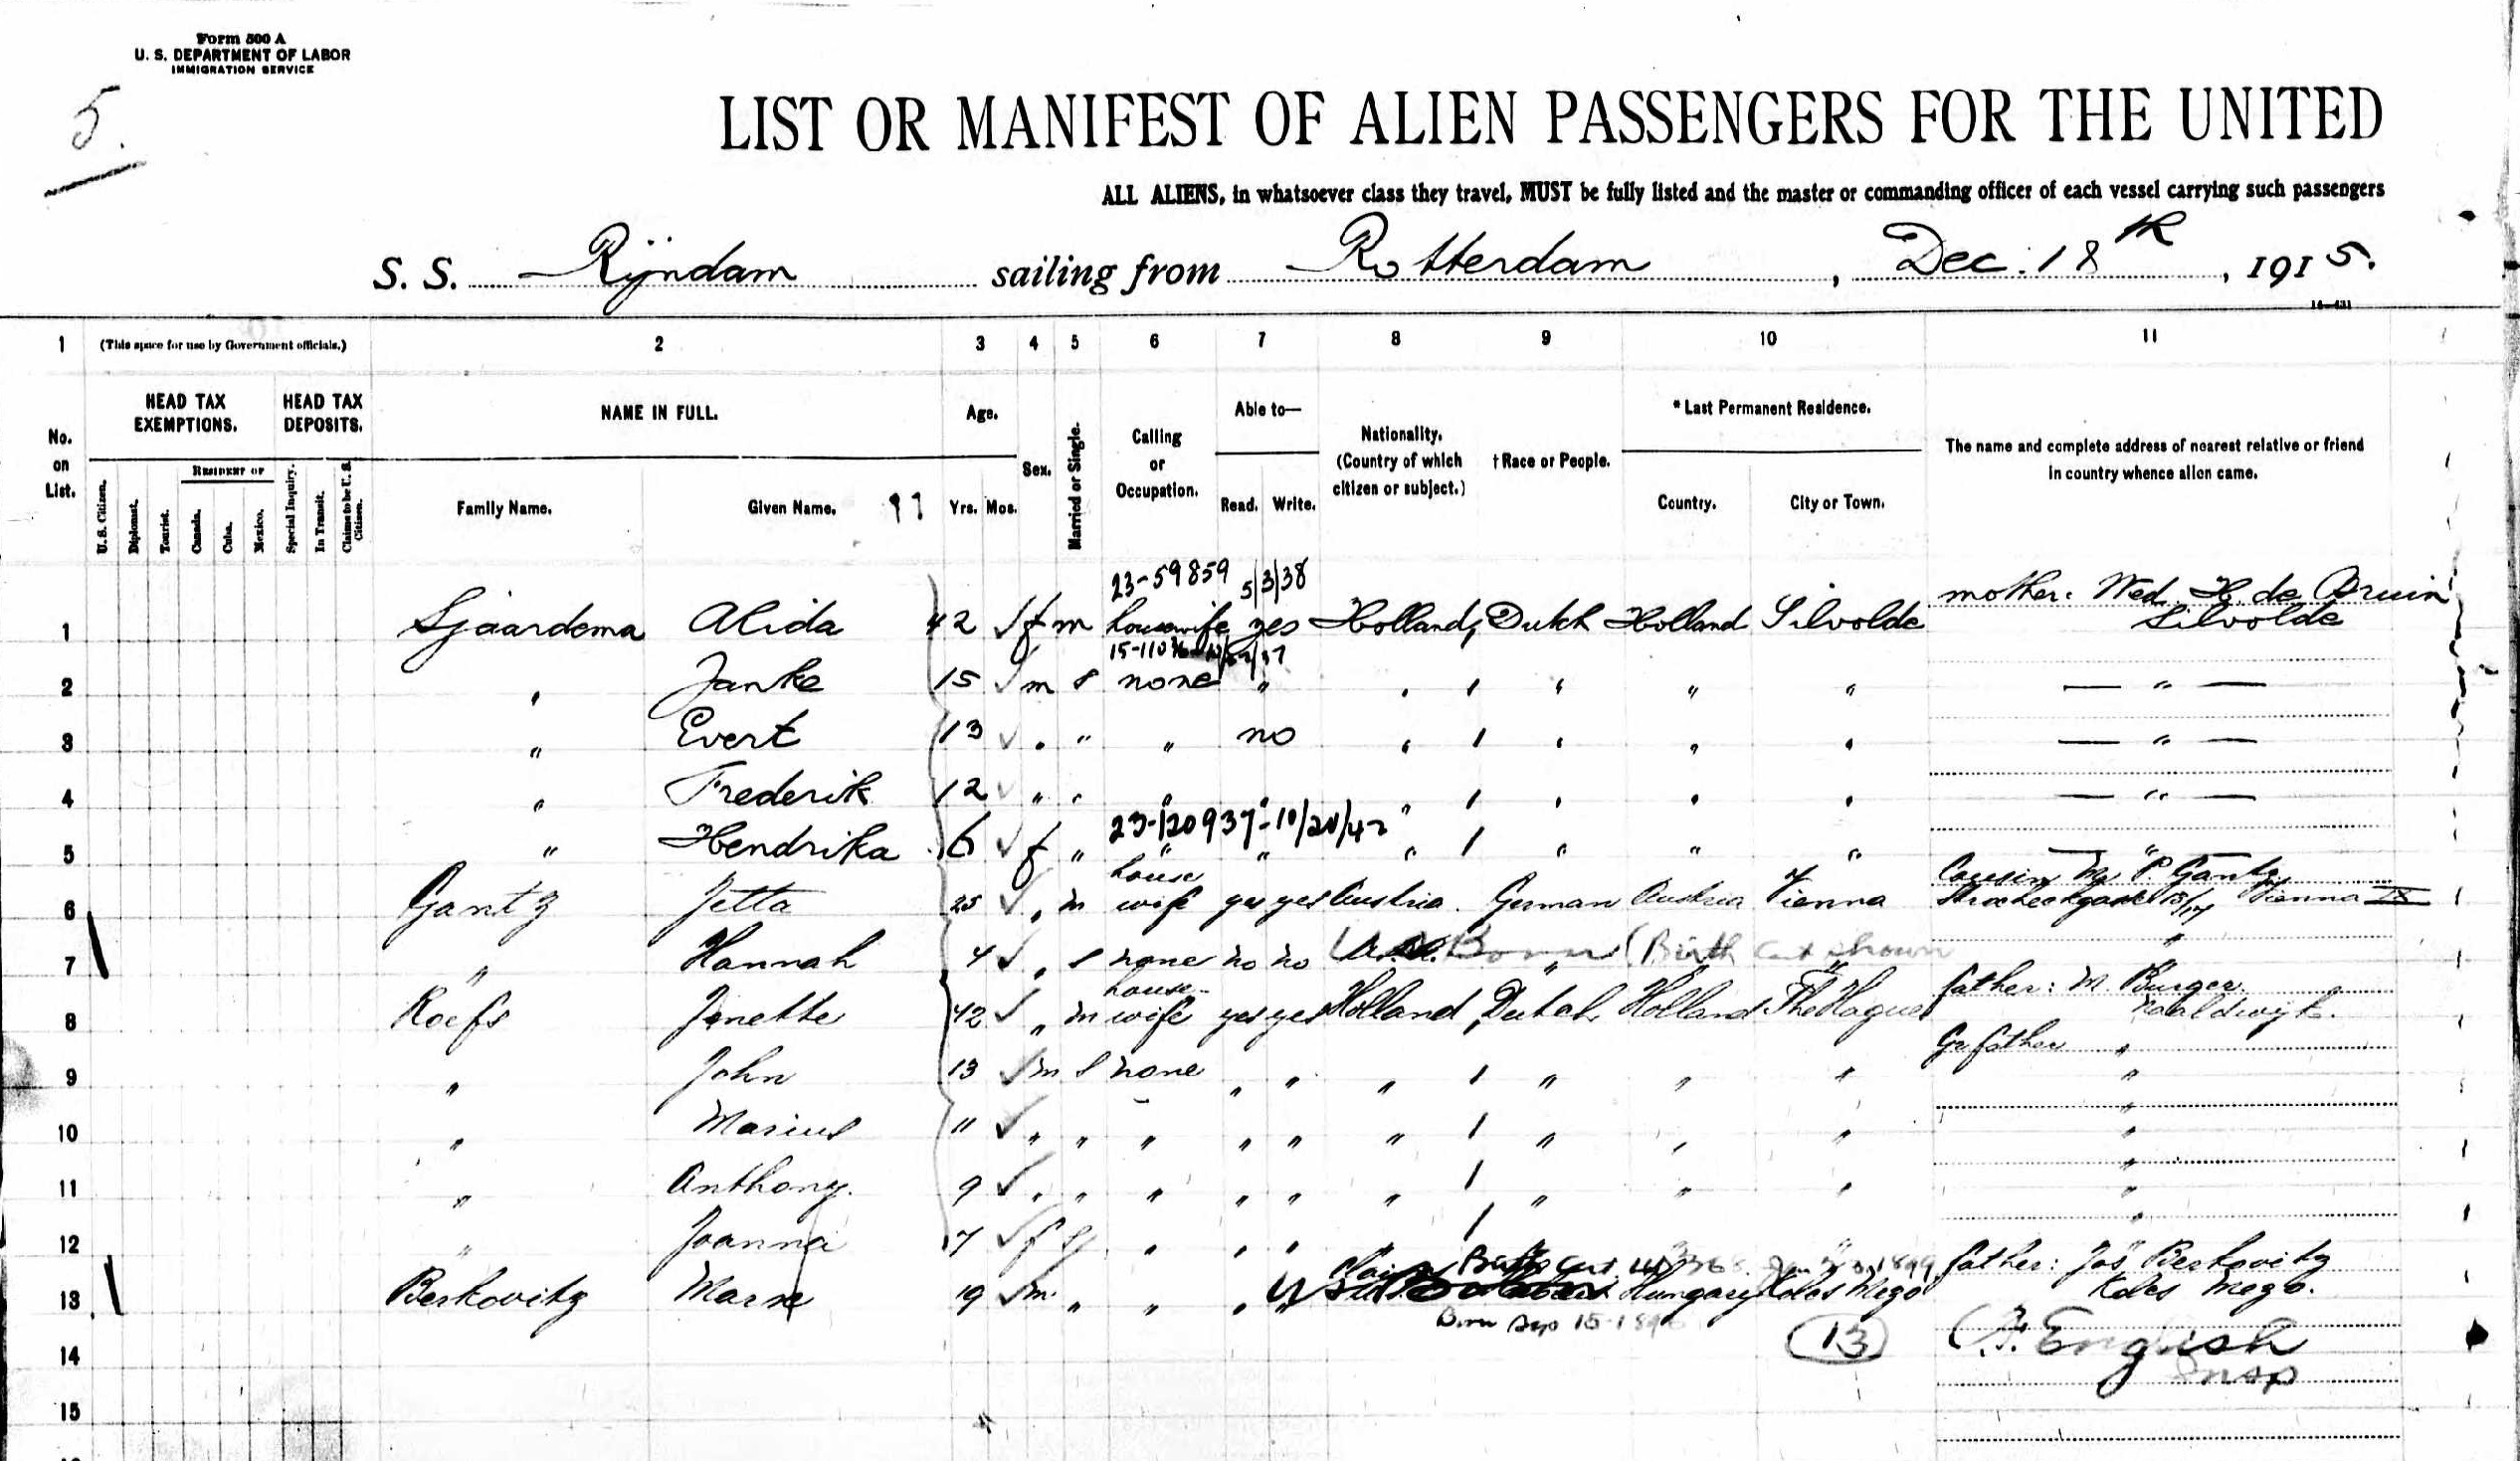 Form 500 A
U. S. DEPARTMENT OF LABOR
IMMIGRATION SERVICE
5.
LIST OR MANIFEST OF ALIEN PASSENGERS FOR THE UNITED
ALL ALIENS, in whatsoever class they travel, MUST be fully listed and the master or commanding officer of each vessel carrying such passengers
S. S. Rijndam sailing from Rotterdam, Dec. 18th, 1915.
1 (This space for use by Government officials.) 2 3 4 5 6 7 8 9 10 11
No. on List.
HEAD TAX EXEMPTIONS.
HEAD TAX DEPOSITS.
NAME IN FULL.
Age.
Sex.
Married or Single.
Calling or Occupation.
Able to—
Nationality. (Country of which citizen or subject.)
†Race or People.
*Last Permanent Residence.
The name and complete address of nearest relative or friend in country whence alien came.
U. S. Citizen. Diplomat. Tourist. RESIDENT OF Canada. Cuba. Mexico. Special Inquiry. In Transit. Claims to be U. S. Citizen.
Family Name. Given Name. Yrs. Mos. Read. Write. Country. City or Town.
23-59859 5/3/38
1 Sjaardema Alida 42 f m housewife yes Holland Dutch Holland Silvolde mother: Wed. H. de Bruin Silvolde
2 " Janke 15 m s none " " " " " — " —
3 " Evert 13 " " " no " " " " — " —
4 " Frederik 12 " " " " " " " " — " —
23-120937-10/20/42
5 " Hendrika 6 f " " " " " " " — " —
6 Gantz Jetta 25 " m house wife yes yes Austria German Austria Vienna Cousin P. Gantz Vienna IX
7 " Hannah 4 " s none no no Born " (Birth shown "
8 Roefs Jenette 42 " m house-wife yes yes Holland Dutch Holland The Hague father: M. Burger Naaldwyk.
Gr father "
9 " John 13 m s none " " " " " " "
10 " Marius 11 " " " " " " " " " "
11 " Anthony. 9 " " " " " " " " " "
12 " Joanna 7 f s " " " " " " " "
13 Berkovitz 19 m " " " " Hungary father: Jos Berkovitz
Born Sep 15-
14 (13) English
15